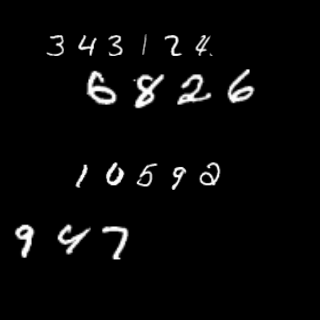 343124
6826
10592
947